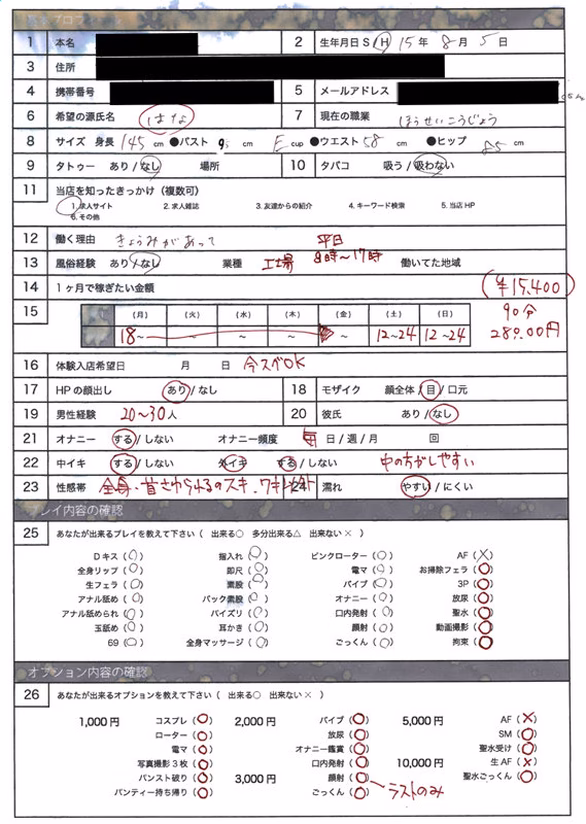 1 本名
2 生年月日 S/H 15年 8月 5日
3 住所
4 携帯番号
5 メールアドレス
6 希望の源氏名 はな
7 現在の職業 ほうせいこうじょう
8 サイズ 身長 145 cm ●バスト cm E cup ●ウエスト 58 cm ●ヒップ 85 cm
9 タトゥー あり/なし 場所
10 タバコ 吸う/吸わない
11 当店を知ったきっかけ（複数可）
1. 求人サイト 2. 求人雑誌 3. 友達からの紹介 4. キーワード検索 5. 当店HP
6. その他
12 働く理由 きょうみがあって
平日
13 風俗経験 あり/なし 業種 工場 8時～17時 働いてた地域
14 1ヶ月で稼ぎたい金額
(¥15,400)
90分
28000円
15 （月） （火） （水） （木） （金） （土） （日）
18～ ～ ～ ～ ～ 12～24 12～24
16 体験入店希望日 月 日 今スぐOK
17 HPの顔出し あり/なし
18 モザイク 顔全体/目/口元
19 男性経験 20～30人
20 彼氏 あり/なし
21 オナニー する/しない オナニー頻度 毎 日/週/月 回
22 中イキ する/しない 外イキ する/しない 中の方がしやすい
23 性感帯 全身・首さわられるのスキ.
24 濡れ やすい/にくい
プレイ内容の確認
25 あなたが出来るプレイを教えて下さい（ 出来る○ 多分出来る△ 出来ない× ）
Dキス（○） 指入れ（○） ピンクローター（○） AF（×）
全身リップ（○） 即尺（○） 電マ（○） お掃除フェラ（○）
生フェラ（○） 素股（○） バイブ（○） 3P（○）
アナル舐め（○） バック素股（○） オナニー（○） 放尿（○）
アナル舐められ（○） パイズリ（○） 口内発射（○） 聖水（○）
玉舐め（○） 耳かき（○） 顔射（○） 動画撮影（○）
69（○） 全身マッサージ（○） ごっくん（○） 拘束（○）
オプション内容の確認
26 あなたが出来るオプションを教えて下さい（ 出来る○ 出来ない× ）
1,000円 コスプレ（○） 2,000円 バイブ（○） 5,000円 AF（×）
ローター（○） 放尿（○） SM（○）
電マ（○） オナニー鑑賞（○） 聖水受け（○）
写真撮影3枚（○） 口内発射（○） 10,000円 生AF（×）
パンスト破り（○） 3,000円 顔射（○） 聖水ごっくん（○）
パンティー持ち帰り（○） ごっくん（○） ラストのみ